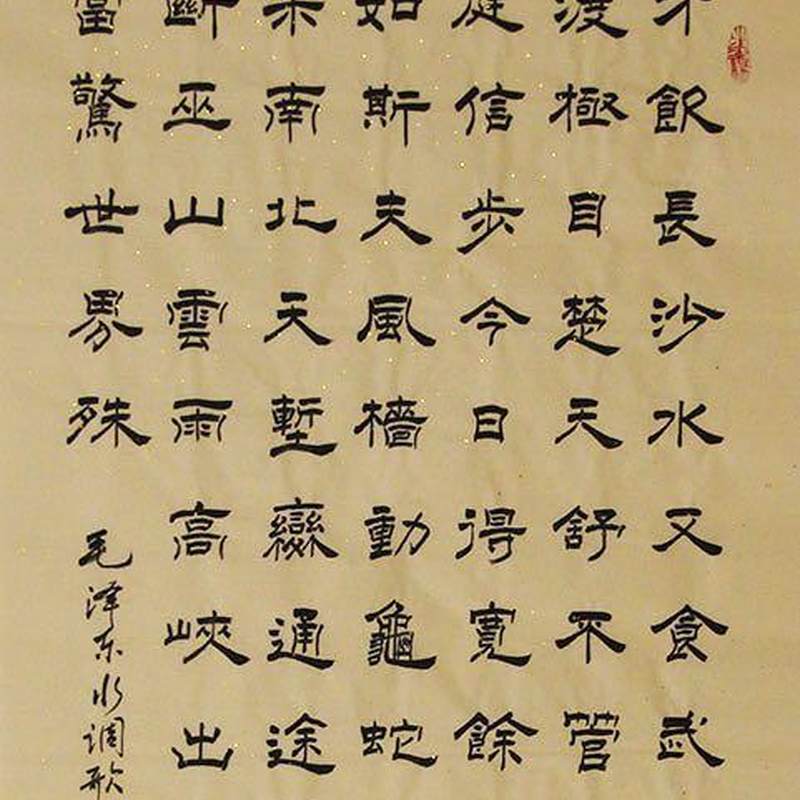 才飲長沙水又食武
渡極目楚天舒不管
庭信步今日得寬餘
如斯夫風檣動龜蛇
架南北天塹變通途
斷巫山雲雨高峽出
當驚世界殊
毛泽东水调歌